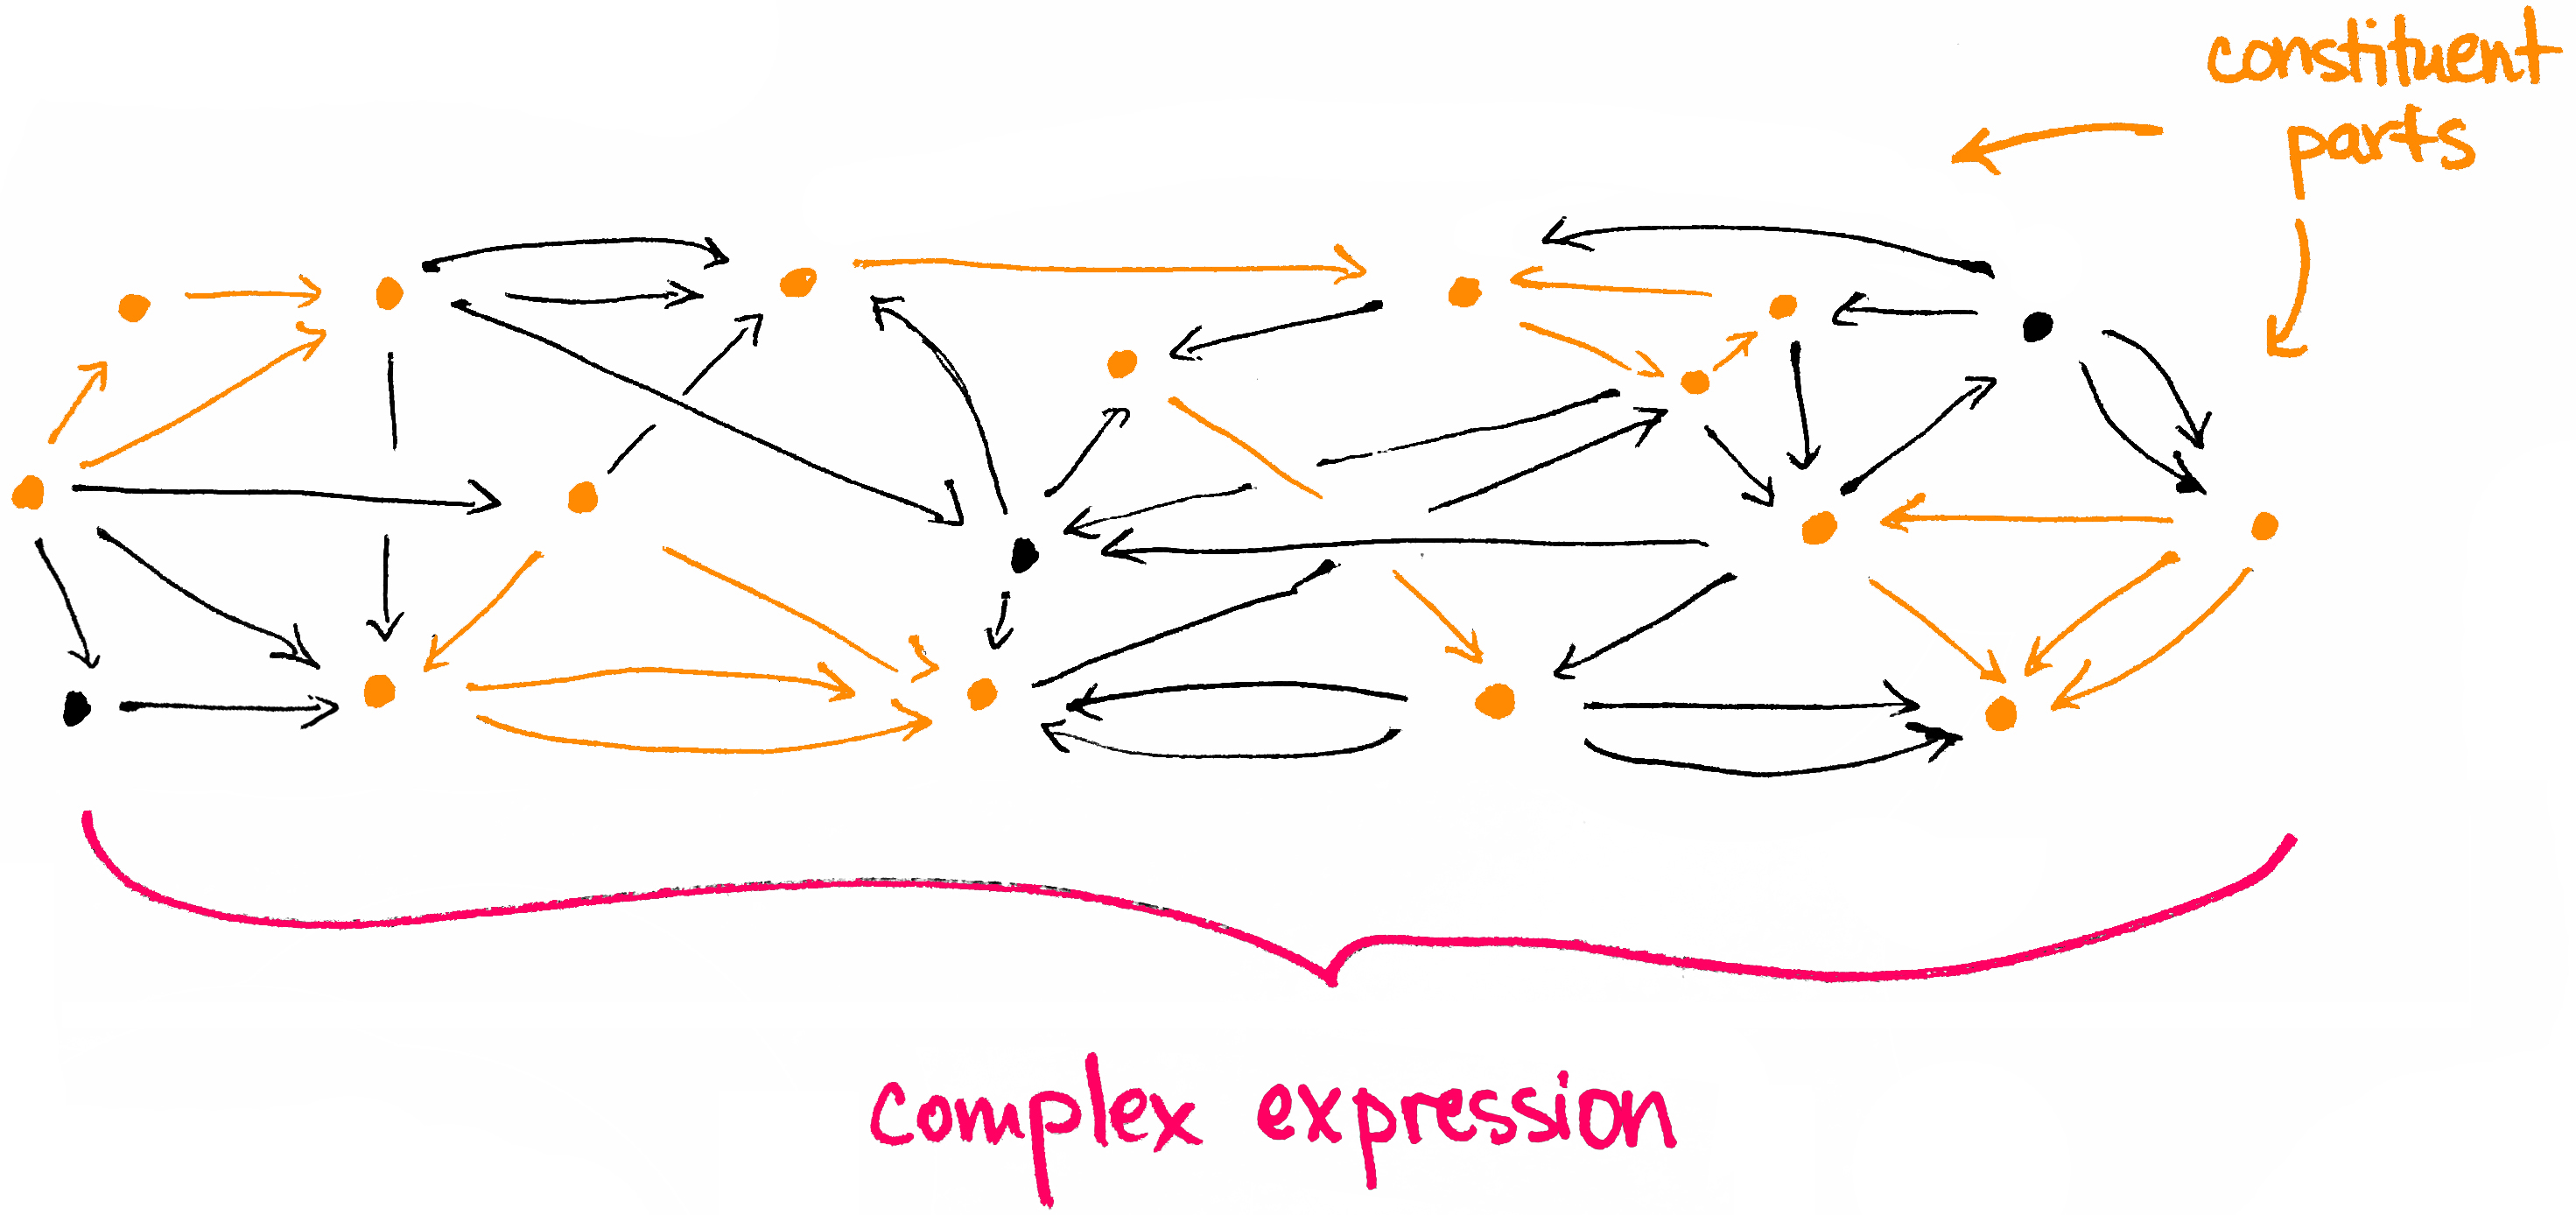 constituent
parts
complex expression